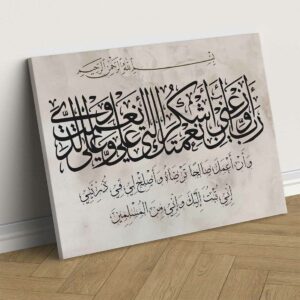 بسم الله الرحمن الرحيم
رب أوزعني أن أشكر نعمتك التي أنعمت علي وعلى والدي
وَأَنْ أَعْمَلَ صَالِحًا تَرْضَاهُ وَأَصْلِحْ لِي فِي ذُرِّيَّتِي
إِنِّي تُبْتُ إِلَيْكَ وَإِنِّي مِنَ الْمُسْلِمِينَ